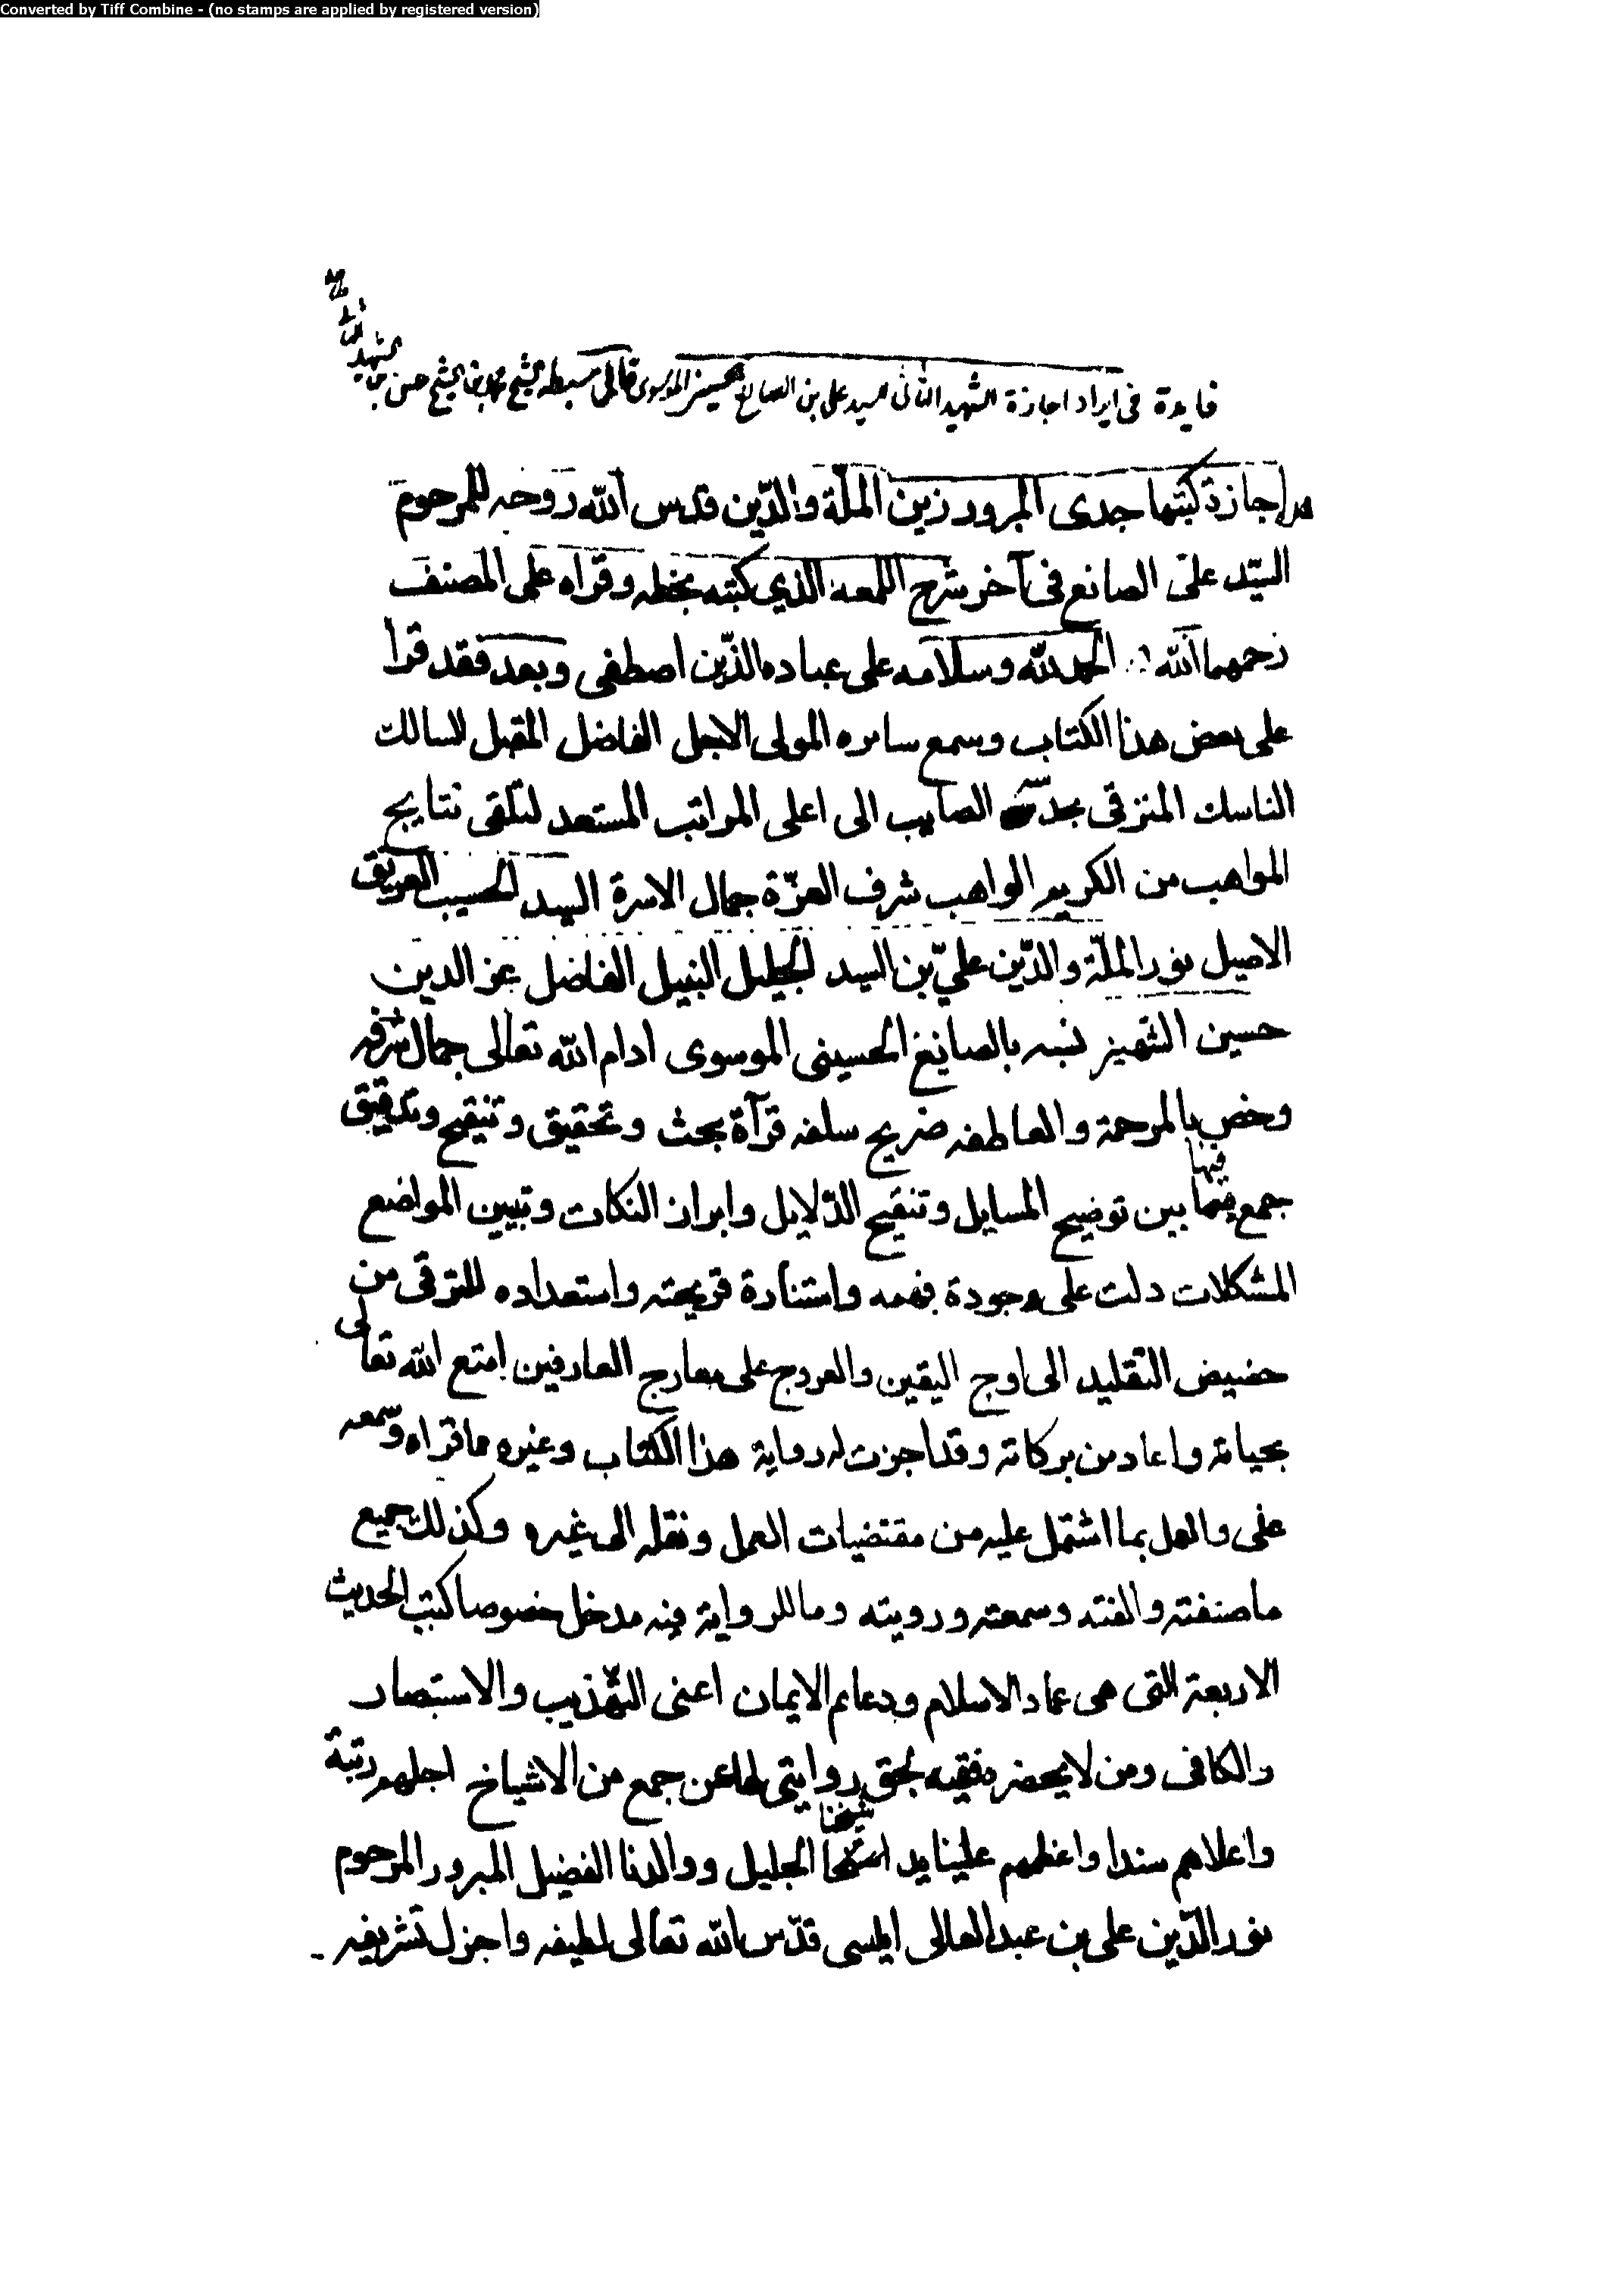 Converted by Tiff Combine - (no stamps are applied by registered version)
فايدة فى ايراد اجازة الشهيد الثانى للسيد على بن الصايغ الحسينى الموسوى قال سبطه الشيخ محمد بن الشيخ حسن بن الشهيد الثانى
اجازة كتبها جدى المبرور زين الملّة والدّين قدس الله روحه للمرحوم
السيّد علىّ الصانع فى آخر شرح اللمعه الذي كتبه بخطه وقراه على المصنف
رحمهما الله الحمد لله وسلامه على عباده الذين اصطفى وبعد فقد قرا
على بعض هذا الكتاب وسمع سايره المولى الاجل الفاضل المقبل السالك
الناسك المترقى بحدسه الصايب الى اعلى المراتب المستعد لتلقى نتايج
المواهب من الكريم الواهب شرف العزّة جمال الاسرة السيد الحسيب العريق
الاصيل نور الملّة والدّين عليّ بن السيد الجليل النبيل الفاضل عز الدين
حسين الشهير نسبه بالصايغ الحسينى الموسوى ادام الله تعالى جمال شرفه
وخص بالمرحمة والعاطفه ضريح سلفه قرآة بحث وتحقيق وتنقيح وتدقيق
جمع فيها بين توضيح المسايل وتنقيح الدّلايل وابراز النكات وتبيين المواضع
المشكلات دلت على وجودة فهمه واستنارة قريحته واستعداده للترقى من
حضيض التقليد الى اوج اليقين والعروج على معارج العارفين امتع الله تعالى
بحياته واعاد من بركاته وقد اجزت له رواية هذا الكتاب وغيره مما قراه وسمعه
على والعمل بما اشتمل عليه من مقتضيات العمل ونقله الى غيره وكذلك جميع
ما صنفته والفته وسمعته ورويته وما للرواية فيه مدخل خصوصا كتب الحديث
الاربعة التى هى عماد الاسلام ودعايم الايمان اعنى التهذيب والاستبصار
والكافى ومن لا يحضره فقيه بحق روايتى لها عن جمع من الاشياخ اجلهم رتبة
واعلاهم سندا واعظمهم علينا يد شيخنا الجليل ووالدنا الفضيل المبرور المرحوم
نور الدّين على بن عبد العالى الميسى قدّس الله تعالى لطيفه واجزل تشريفه